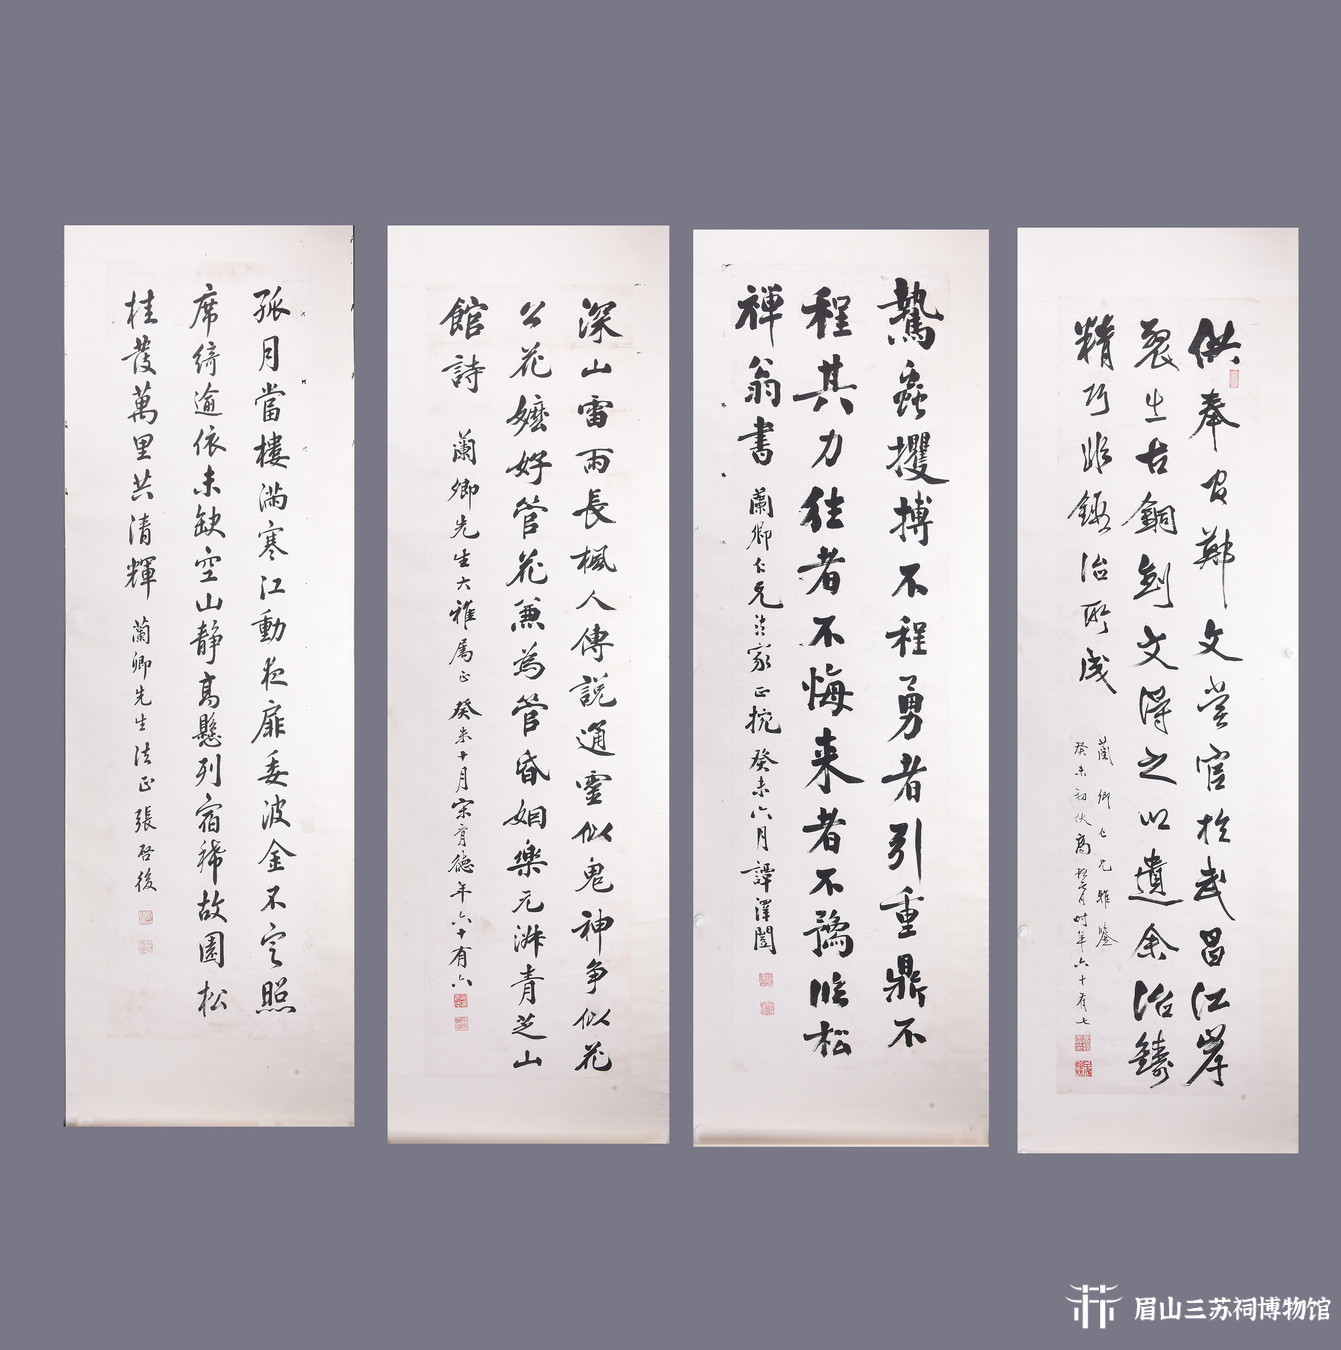 供奉官鄭文嘗官於武昌江岸
裂出古銅劍文得之以遺余冶鑄
精巧非鍛冶所成
蘭卿仁兄雅鑒
癸未初伏高 時年六十有七
鷙蟲攫搏不程勇者引重鼎不
程其力往者不悔来者不豫臨松
禪翁書
蘭卿仁兄法家正捥 癸未六月譚澤闓
深山雷雨長楓人傳説通靈似鬼神争似花
公花嬤好管花兼爲管昏姻樂元淋青芝山
館詩
蘭卿先生大雅属正 癸未十月宋育德年六十有六
孤月當樓滿寒江動夜扉委波金不定照
席綺逾依未缺空山静高懸列宿稀故園松
桂發萬里共清輝
蘭卿先生法正 張啓後
眉山三苏祠博物馆